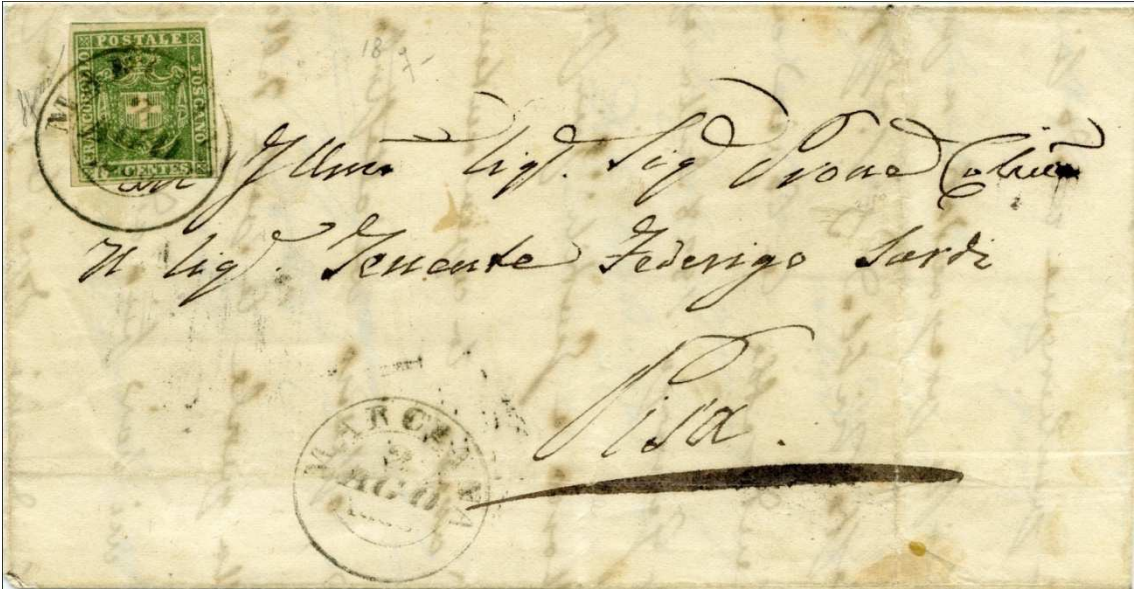 FRANCOBOLLO POSTALE TOSCANO
CENTES
Illmo Sig. Sig Prone
Il Sig. Tenente Federigo Sardi
Pisa.
MARCIANA
AGO